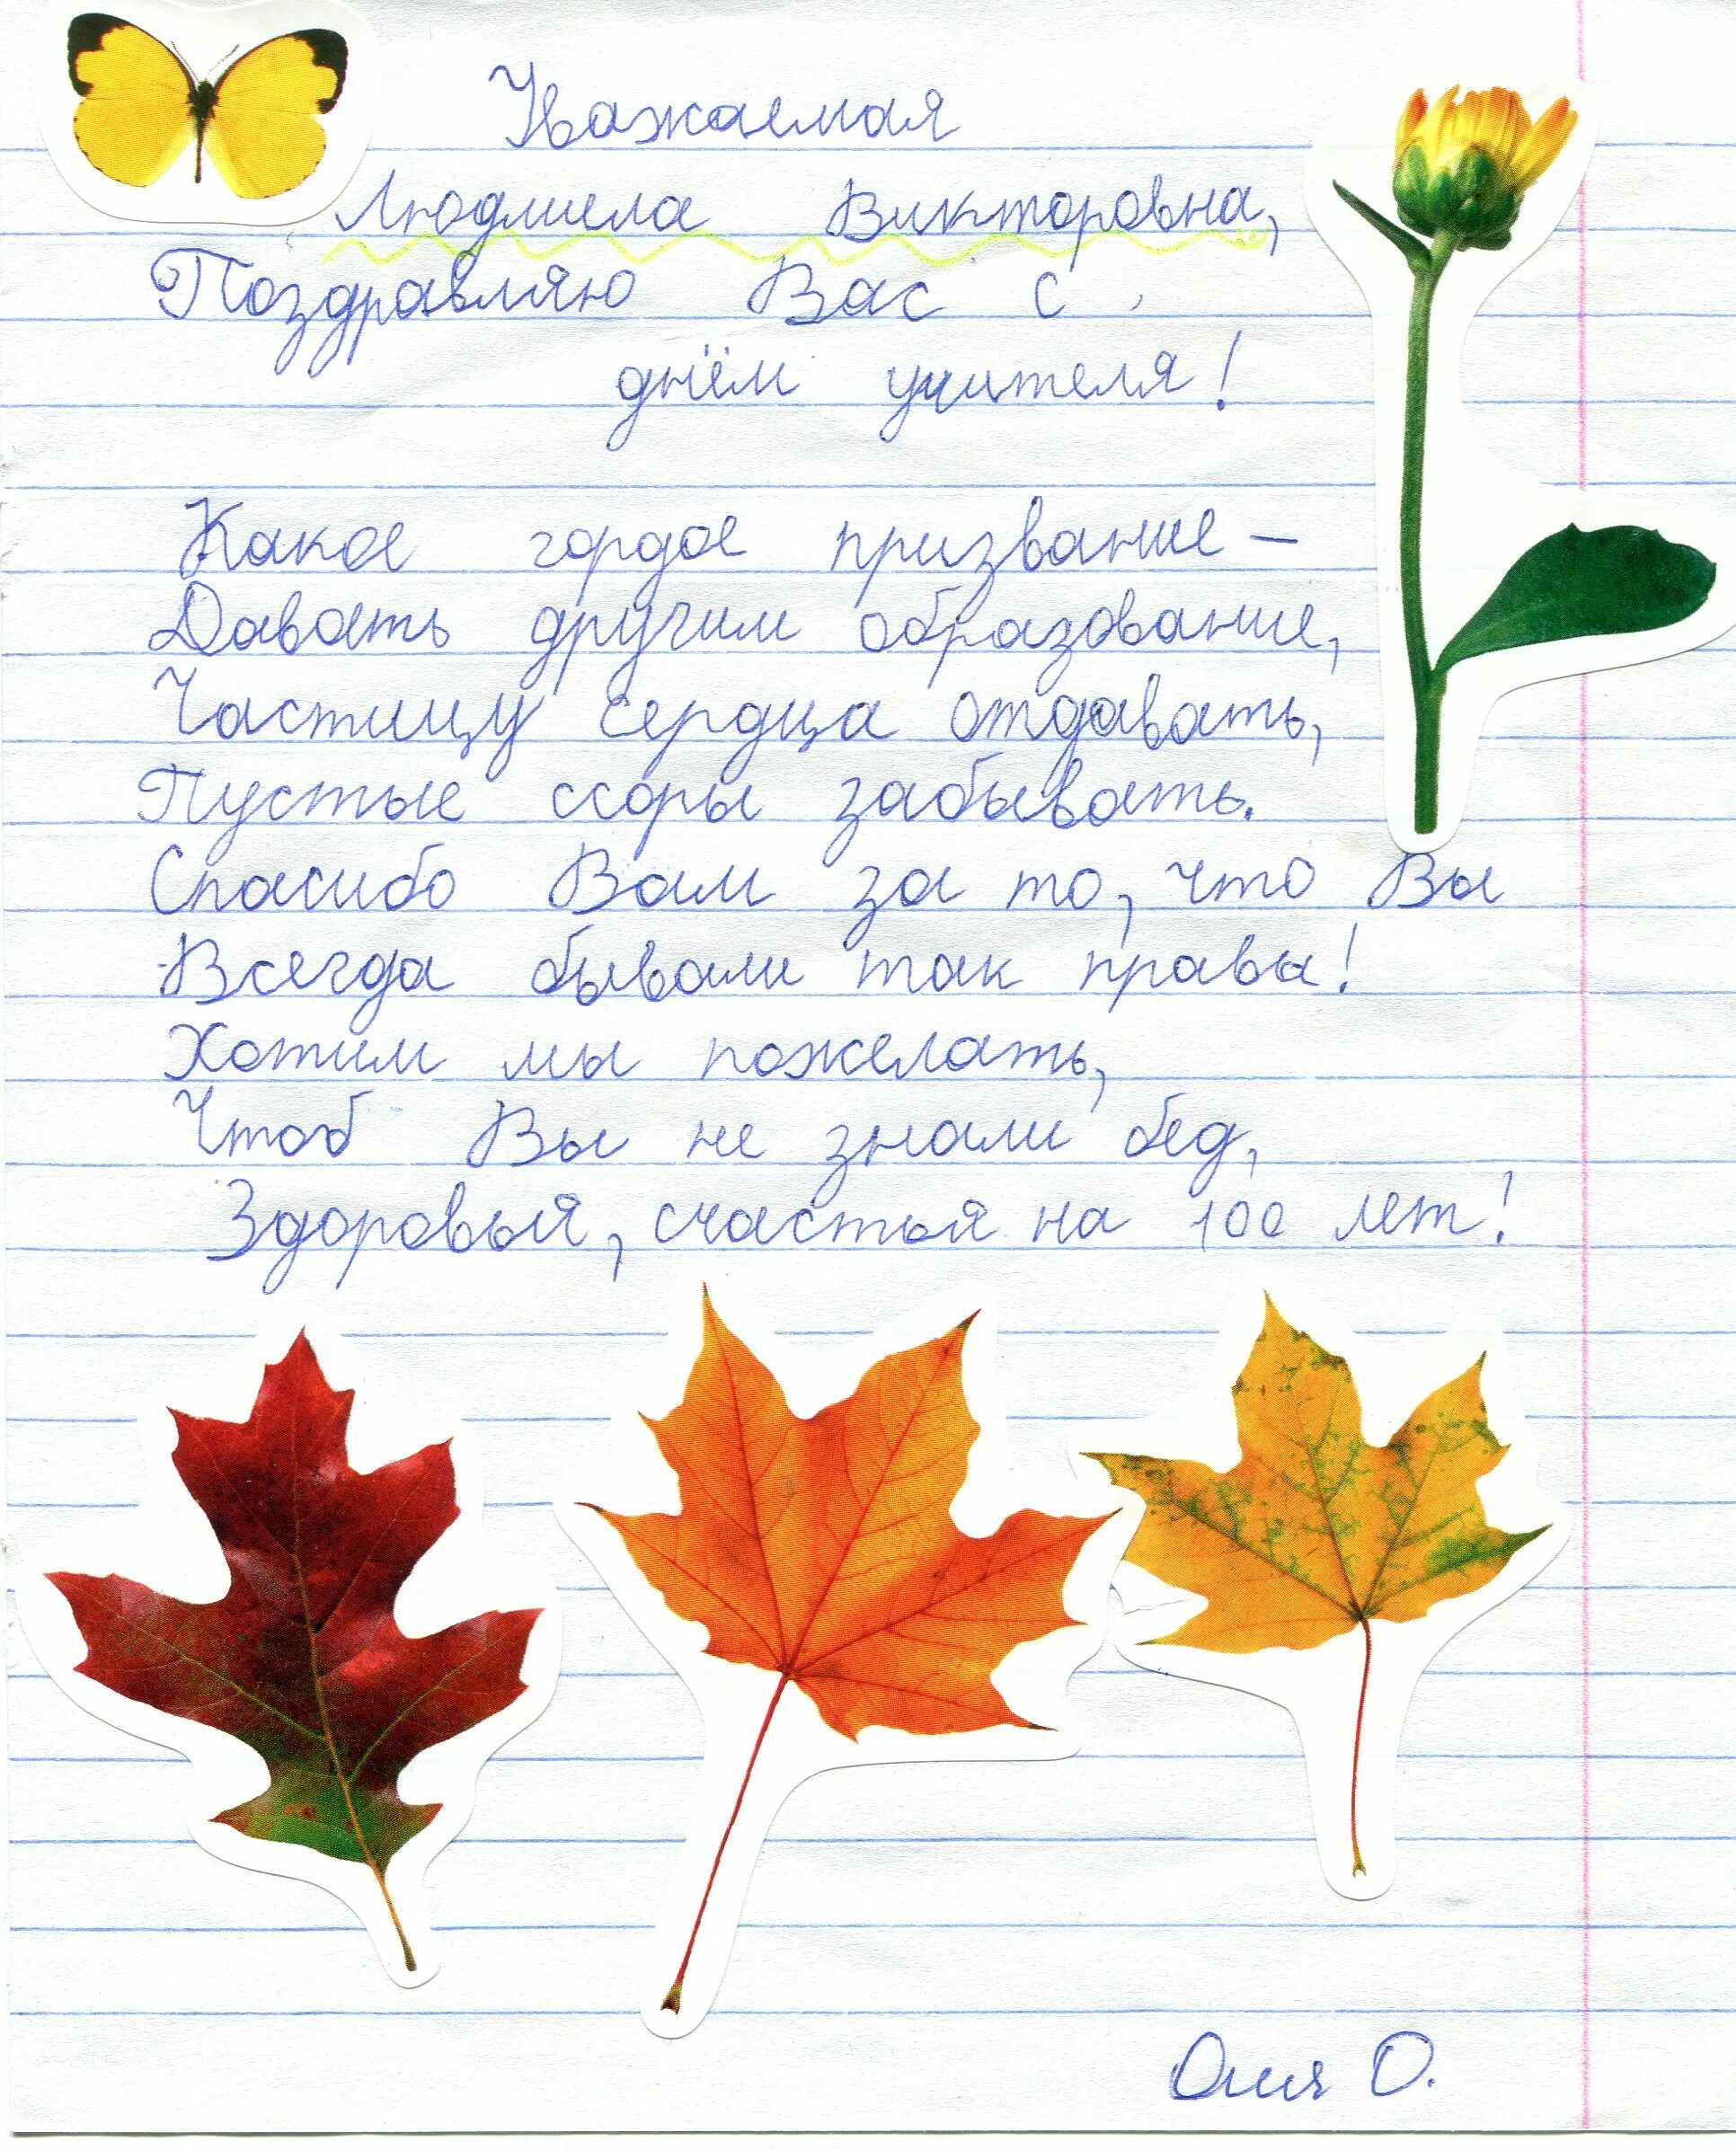 Уважаемая
Людмила Викторовна,
Поздравляю Вас с
днём учителя!
Какое гордое призвание –
Давать другим образование,
Частицу сердца отдавать,
Пустые ссоры забывать.
Спасибо Вам за то, что Вы
Всегда бывали так правы!
Хотим мы пожелать,
Чтоб Вы не знали бед,
Здоровья, счастья на 100 лет!
Оля О.